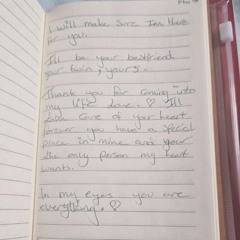 I will make sure Im there
for you.
I'll be your bestfriend
your twin, yours.
Thank you for coming into
my life love. ♡ Ill
take care of your heart
forever you have a special
place in mine and your
the only person my heart
wants.
In my eyes you are
everything. ♡